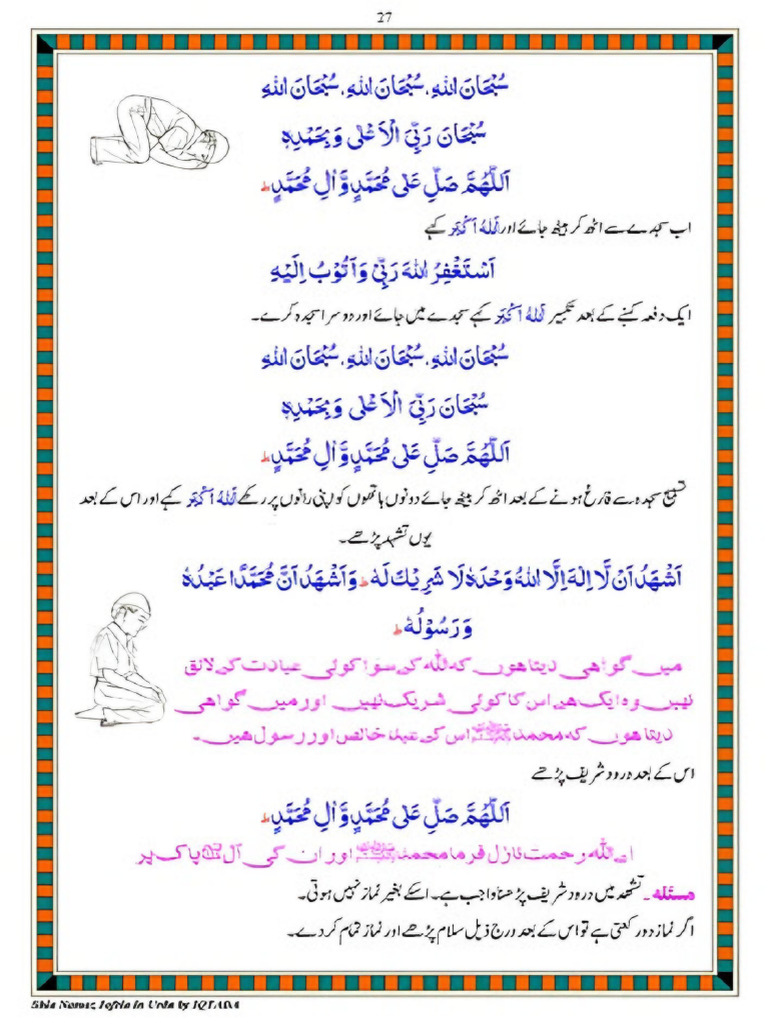 27
سُبْحَانَ اللهِ، سُبْحَانَ اللهِ، سُبْحَانَ اللهِ
سُبْحَانَ رَبِّيَ الْاَعْلٰى وَبِحَمْدِهٖ
اَللّٰهُمَّ صَلِّ عَلٰى مُحَمَّدٍ وَّاٰلِ مُحَمَّدٍ ؕ
اب سجدے سے اٹھ کر بیٹھ جائے اور اَللهُ اَكْبَر کہے
اَسْتَغْفِرُ اللهَ رَبِّيْ وَاَتُوْبُ اِلَيْهِ
ایک دفعہ کہنے کے بعد تکبیر اَللهُ اَكْبَر کہے سجدے میں جائے اور دوسرا سجدہ کرے۔
سُبْحَانَ اللهِ، سُبْحَانَ اللهِ، سُبْحَانَ اللهِ
سُبْحَانَ رَبِّيَ الْاَعْلٰى وَبِحَمْدِهٖ
اَللّٰهُمَّ صَلِّ عَلٰى مُحَمَّدٍ وَّاٰلِ مُحَمَّدٍ ؕ
تسبیح سجدہ سے فارغ ہونے کے بعد اٹھ کر بیٹھ جائے دونوں ہاتھوں کو اپنی رانوں پر رکھے اَللهُ اَكْبَر کہے اور اس کے بعد
یوں تشہد پڑھے۔
اَشْهَدُ اَنْ لَّا اِلٰهَ اِلَّا اللهُ وَحْدَهٗ لَا شَرِيْكَ لَهٗ ؕ وَاَشْهَدُ اَنَّ مُحَمَّدًا عَبْدُهٗ
وَرَسُوْلُهٗ ؕ
میں گواہی دیتا ہوں کہ اللہ کے سوا کوئی عبادت کے لائق
نہیں وہ ایک ہے اس کا کوئی شریک نہیں اور میں گواہی
دیتا ہوں کہ محمد ﷺ اس کے عبد خالص اور رسول ہیں۔
اس کے بعد درود شریف پڑھے
اَللّٰهُمَّ صَلِّ عَلٰى مُحَمَّدٍ وَّاٰلِ مُحَمَّدٍ ؕ
اے اللہ رحمت نازل فرما محمد ﷺ اور ان کی آل پاک پر
مسئلہ۔ تشھد میں درود شریف پڑھنا واجب ہے۔ اسکے بغیر نماز نہیں ہوتی۔
اگر نماز دو رکعتی ہے تو اس کے بعد درج ذیل سلام پڑھے اور نماز تمام کر دے۔
Shia Namaz Jafria in Urdu by IQTADA